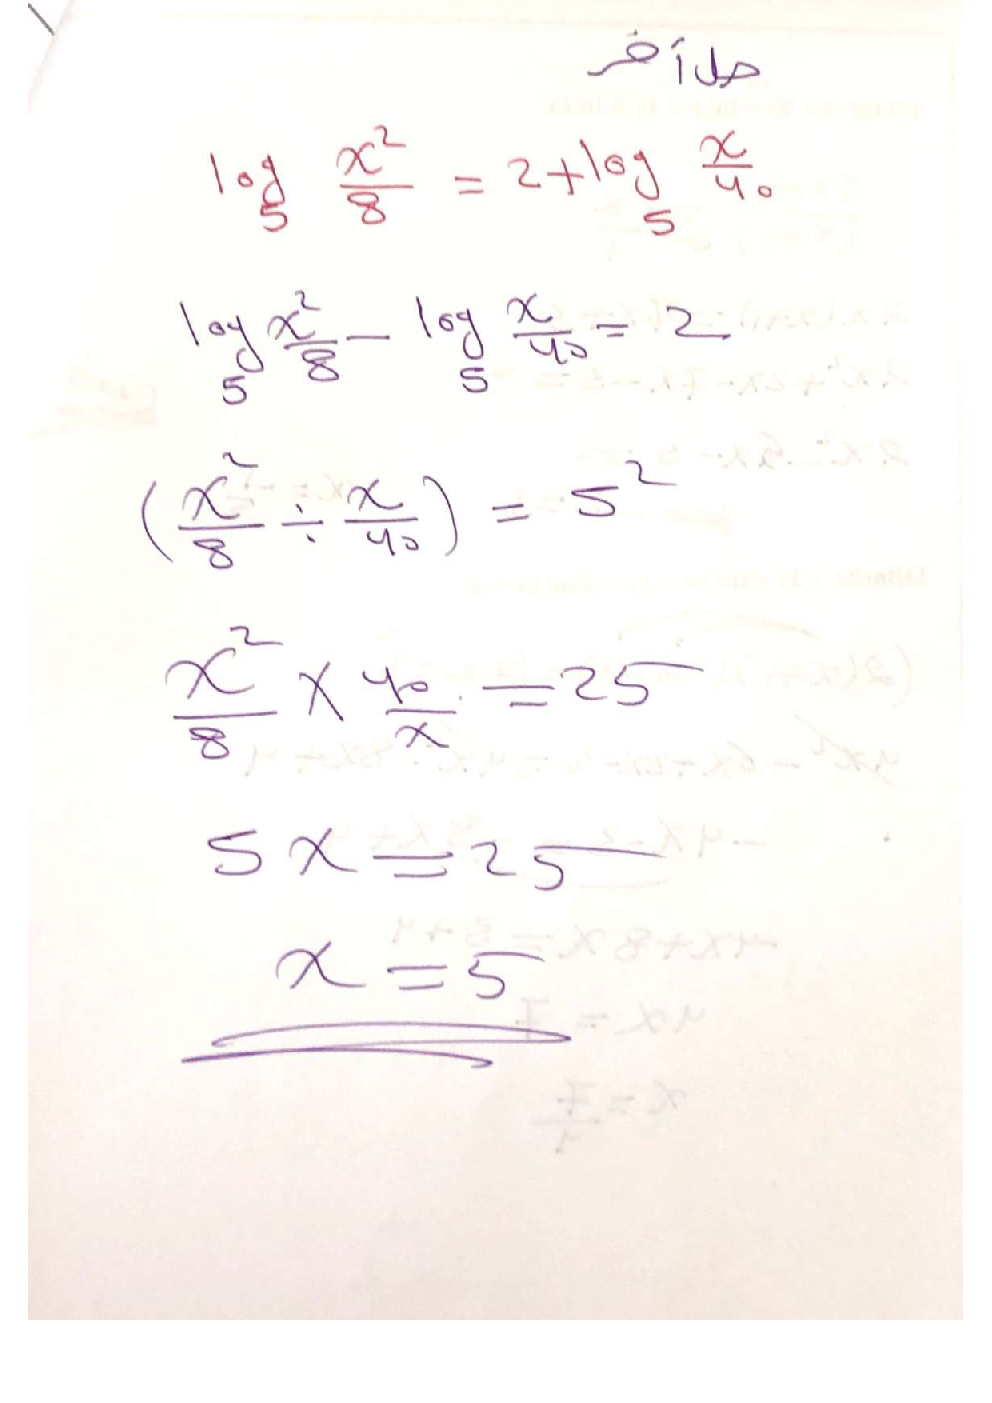 حل آخر
log₅ x²/8 = 2 + log₅ x/40
log₅ x²/8 − log₅ x/40 = 2
(x²/8 ÷ x/40) = 5²
x²/8 × 40/x = 25
5x = 25
x = 5